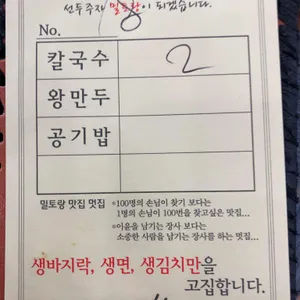 선두주자 밀토랑이 되겠습니다.
No.
칼국수 2
왕만두
공기밥
밀토랑 맛집 멋집 *100명의 손님이 찾기 보다는
1명의 손님이 100번을 찾고싶은 맛집...
*이윤을 남기는 장사 보다는
소중한 사람을 남기는 장사를 하는 멋집...
생바지락, 생면, 생김치만을
고집합니다.